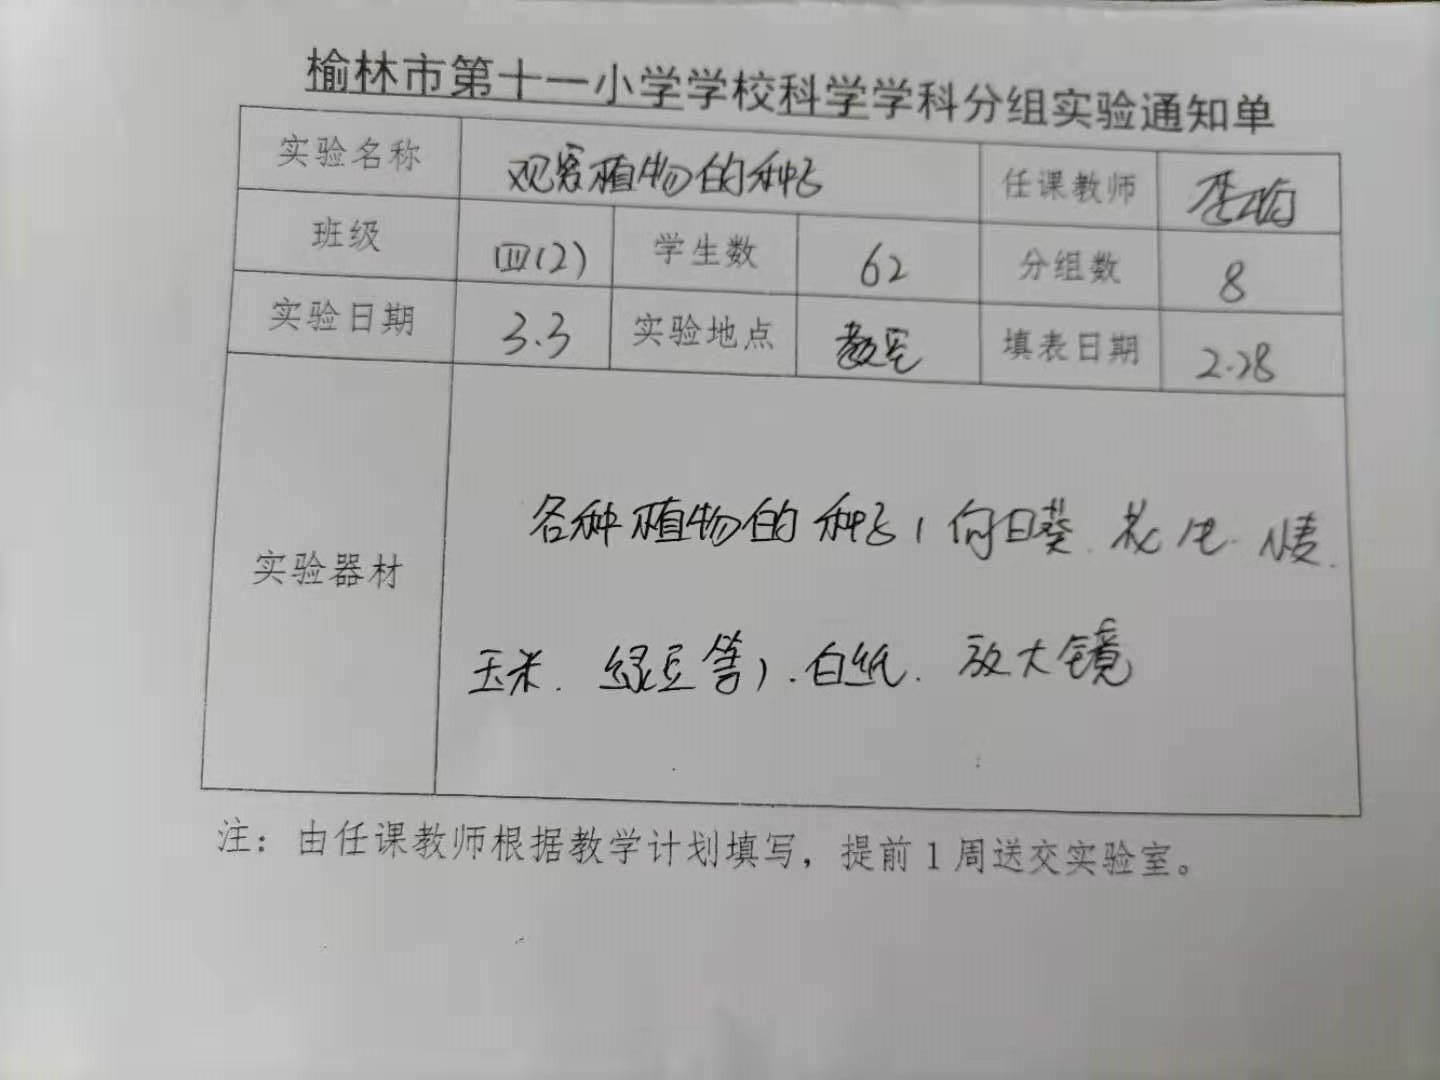 榆林市第十一小学学校科学学科分组实验通知单
实验名称 观察植物的种子 任课教师
班级 四(2) 学生数 62 分组数 8
实验日期 3.3 实验地点 教室 填表日期 2.28
实验器材
各种植物的种子(向日葵.花生.小麦.
玉米.绿豆等).白纸.放大镜
注：由任课教师根据教学计划填写，提前1周送交实验室。